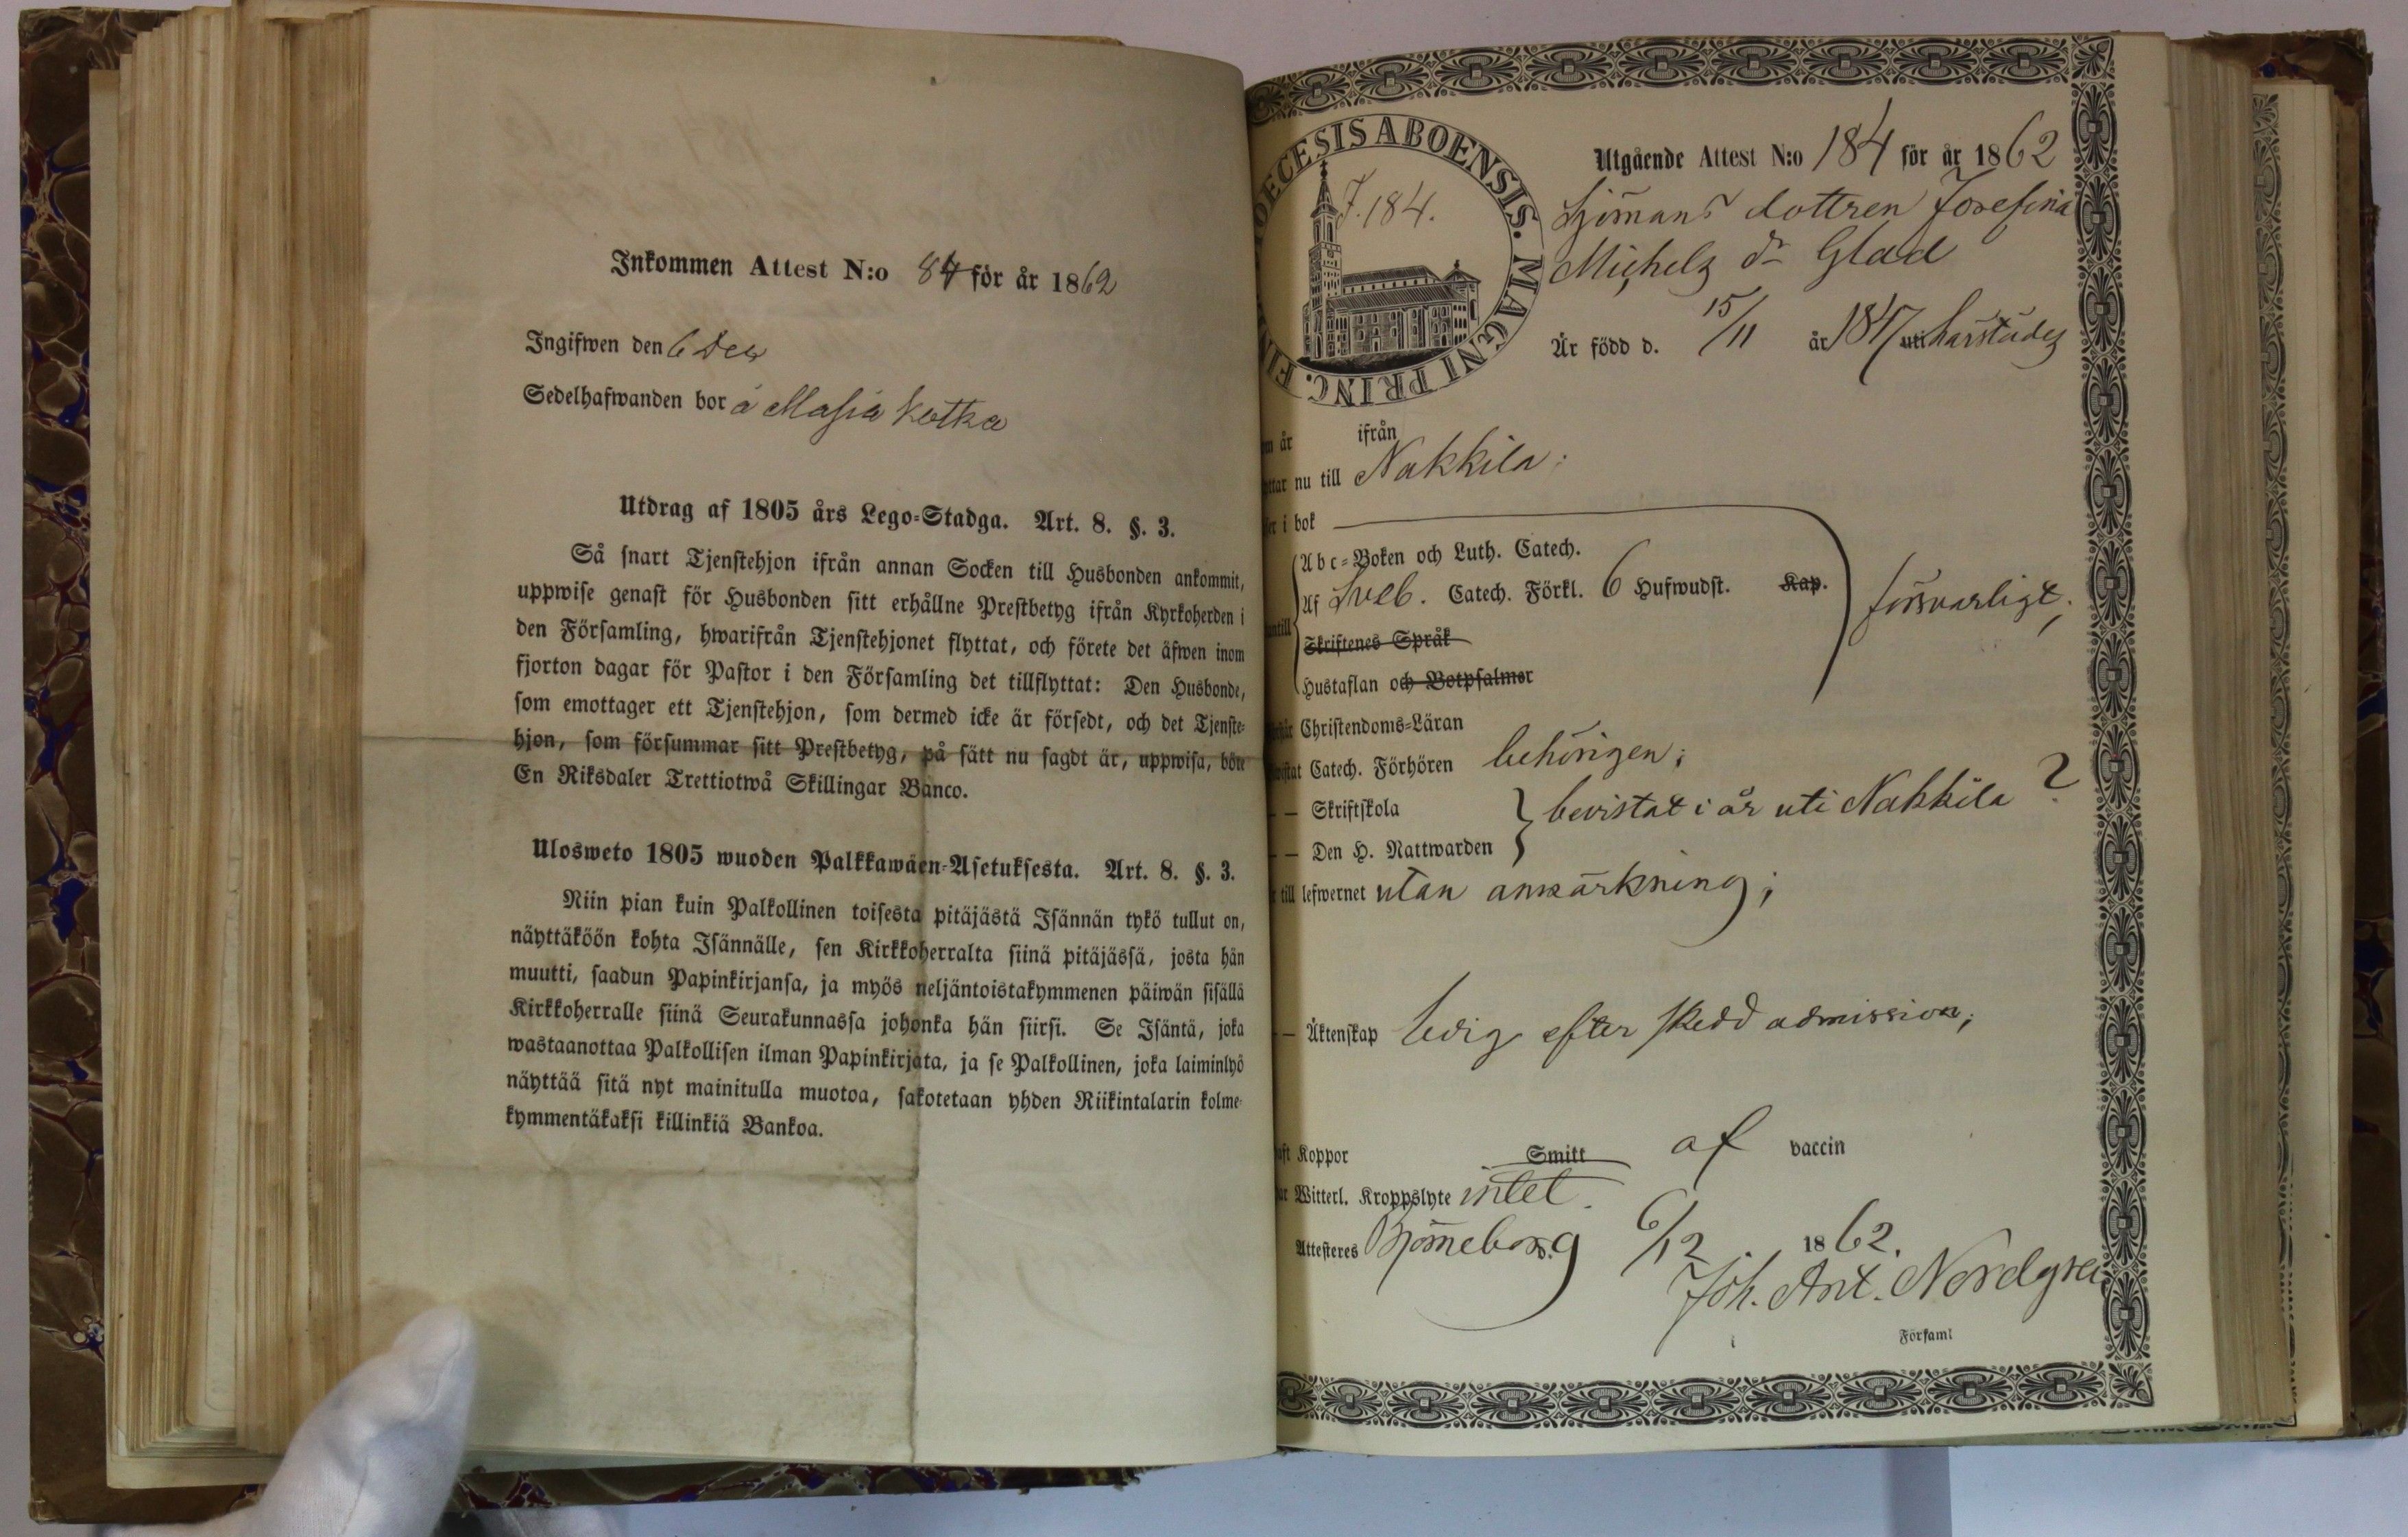 Inkommen Attest N:o 84 för år 1862
Ingifwen den 6 Dec
Sedelhafwanden bor å Masia kotka
Utdrag af 1805 års Lego-Stadga. Art. 8. §. 3.
Så snart Tjenstehjon ifrån annan Socken till Husbonden ankommit,
uppwise genast för Husbonden sitt erhållne Prestbetyg ifrån Kyrkoherden i
den Församling, hwarifrån Tjenstehjonet flyttat, och förete det äfwen inom
fjorton dagar för Pastor i den Församling det tillflyttat: Den Husbonde,
som emottager ett Tjenstehjon, som dermed icke är försedt, och det Tjenste-
hjon, som försummar sitt Prestbetyg, på sätt nu sagdt är, uppwisa, böte
En Riksdaler Trettiotwå Skillingar Banco.
Ulosweto 1805 wuoden Palkkawäen-Asetuksesta. Art. 8. §. 3.
Niin pian kuin Palkollinen toisesta pitäjästä Isännän tykö tullut on,
näyttäköön kohta Isännälle, sen Kirkkoherralta siinä pitäjässä, josta hän
muutti, saadun Papinkirjansa, ja myös neljäntoistakymmenen päiwän sisällä
Kirkkoherralle siinä Seurakunnassa johonka hän siirsi. Se Isäntä, joka
wastaanottaa Palkollisen ilman Papinkirjata, ja se Palkollinen, joka laiminlyö
näyttää sitä nyt mainitulla muotoa, sakotetaan yhden Riikintalarin kolme-
kymmentäkaksi killinkiä Bankoa.
OECESIS ABOENSIS. MAGNI PRINC. FI
F. 184.
Utgående Attest N:o 184 för år 1862
Sjömans dottren Josefina
Michels dr Glad
Är född d. 15/11 år 1847 uti härstädes
år ifrån
nu till Nakkila.
i bok
Abc-Boken och Luth. Catech.
Af Sveb. Catech. Förkl. 6 Hufwudst. Kap.
försvarligt;
Skriftenes Språk
Hustaflan och Botpsalmer
Christendoms-Läran
Catech. Förhören behörigen;
— Skriftskola
bevistat i år uti Nakkila ?
— Den H. Nattwarden
till lefwernet utan anmärkning;
— Äktenskap ledig efter skedd admission;
Koppor Smitt af vaccin
Witterl. Kroppslyte intet.
Attesteres Björneborg d. 6/12 1862.
Joh. Ant. Nordgren
Församl